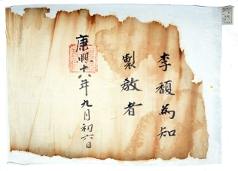 李為知
製教者
康熙十六年九月初六日